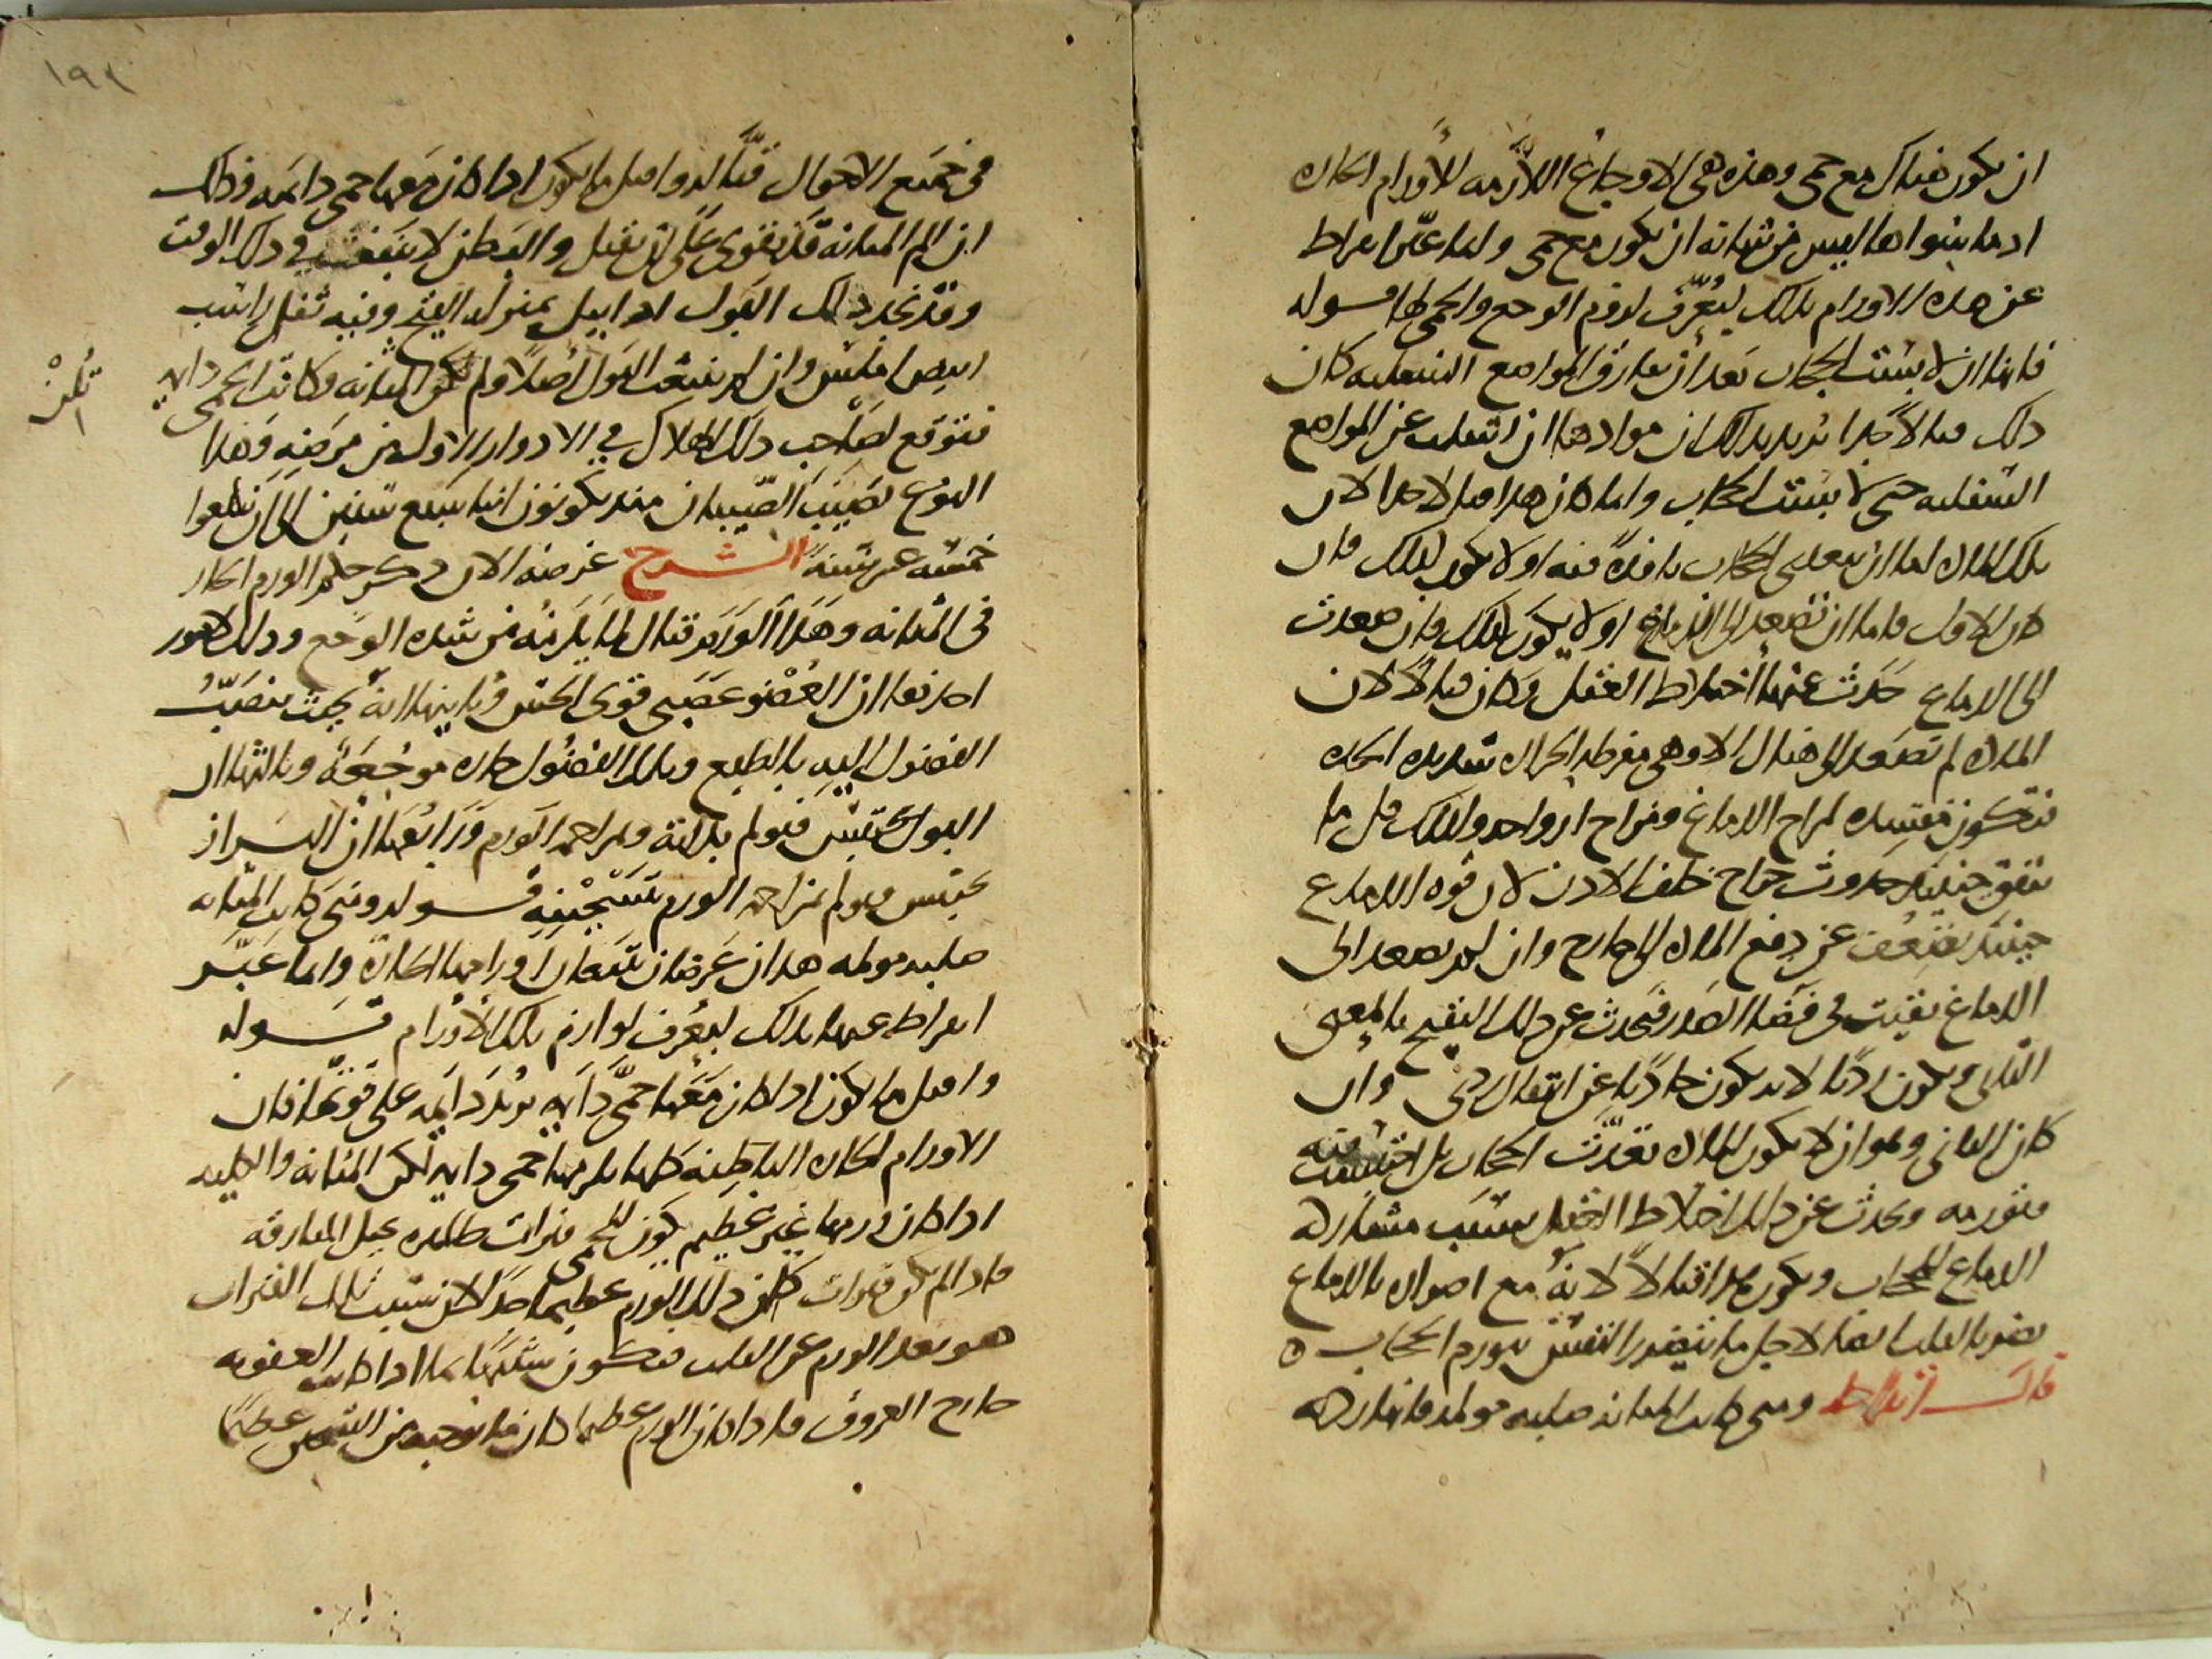 ان يكون هناك مع حمى وهذه هي الاوجاع اللازمه للاورام الحاره
اذ ما سواها ليس من شانه ان يكون مع حمى وانما عبّر ابقراط
عن هذه الاورام بذلك ليُعرّف لزوم الوجع والحمى لها قوله
فانها ان لا بستت الحجاب بعد ان تفارق المواضع السفليه كان
ذلك قتالا جدا يريد بذلك ان موادها ان انتقلت عن المواضع
السفليه حتى لابست الحجاب وانما كان هذا قتالا جدا لان
تلك الماده اما ان تعلى الحجاب نافذة فيه او لا يكون كذلك فان
كان الاول فاما ان تصعد الى الدماغ او لا يكون كذلك فان صعدت
الى الدماغ حدث عنها اختلاط العقل وكان قتالا لان
الماده لم تصعد الى هناك الا وهي مفرطه الحراره شديده الحده
فتكون مفسده لمزاج الدماغ ومزاج ارواحه ولذلك قل ما
يتفق حينئذ حدوث خراج خلف الاذن لان قوه الدماغ
حينئذ تضعف عن دفع الماده الى خارج وان لم تصعد الى
الدماغ بقيت في فضا الصدر فيحدث عن ذلك التقيح بالمعنى
الثاني ويكون رديًا لانه يكون حادثا عن انتقال شي وان
كان الثاني وهو ان لا يكون الماده تعدّت الحجاب بل احتبست فيه
فتورمه ويحدث عن ذلك اختلاط العقل بسبب مشاركه
الدماغ للحجاب ويكون هذا قتالاً لانه مع اضراره بالدماغ
يضر بالقلب ايضا لاجل ما يتضرر التنفس بورم الحجاب ه
قال ابقراط ومتى كانت المثانه صلبه مولمه فانها رديه
١٩٢
في جميع الاحوال قتّاله واقتل ما يكون اذا كان معها حمى دائمه وذلك
ان الم المثانه قد يقوى على ان يقتل والبطن لا ينبعث في ذلك الوقت
وقد يحدر ذلك البول اذا بيل بمنزله القيح وفيه ثفل راسب
ابيض املس وان لم ينبعث البول اصلا ولم تلن المثانه وكانت الحمى دايمه
فتوقع لصاحب ذلك الهلاك في الادوار الاول من مرضه وهذا
النوع يصيب الصبيان منذ يكونون ابنا سبع سنين الى ان يبلغوا
خمسه عشر سنة الشرح غرضه الان ذكر حكم الورم الحار
في المثانه وهذا الورم قتال لما يلزمه من شده الوجع وذلك لامور
احدها ان العضو عصبى قوى الحس وثانيها انه بحيث ينصبّ
الفضول اليه بالطبع وتلك الفضول حاده موجعة وثالثها ان
البول يحتبس فيولم بلدعه ومزاحمه الورم ورابعها ان البراز
يحتبس فيولم بمزاحمه الورم وتسخينه قوله ومتى كانت المثانه
صلبه مولمه هذان عرضان يتبعان اورامها الحاره وانما عبّر
ابقراط عنها بذلك ليعرف لوازم تلك الاورام قوله
واقتل ما يكون اذا كان معها حمى دايمه يريد دايمه على قوتها فان
الاورام الحاره الباطنه كلها يلزمها حمى دايمه لكن المثانه والكليه
اذا كان ورمها غير عظيم يكون للحمى فترات
فاذا لم يكن فترات كان ذلك الورم عظيما جدا لان سبب تلك الفترات
هو بعد الورم عن القلب فيكون شبيها بما اذا كانت العفونه
خارج العروق فاذا كان الورم عظيما كان ما يوجبه من التسخين عظيما
تلن